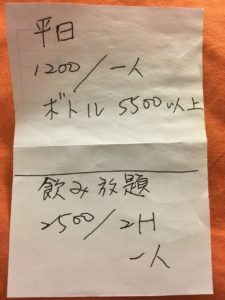 平日
1200/一人
ボトル 5500以上
飲み放題
2500/2H
一人